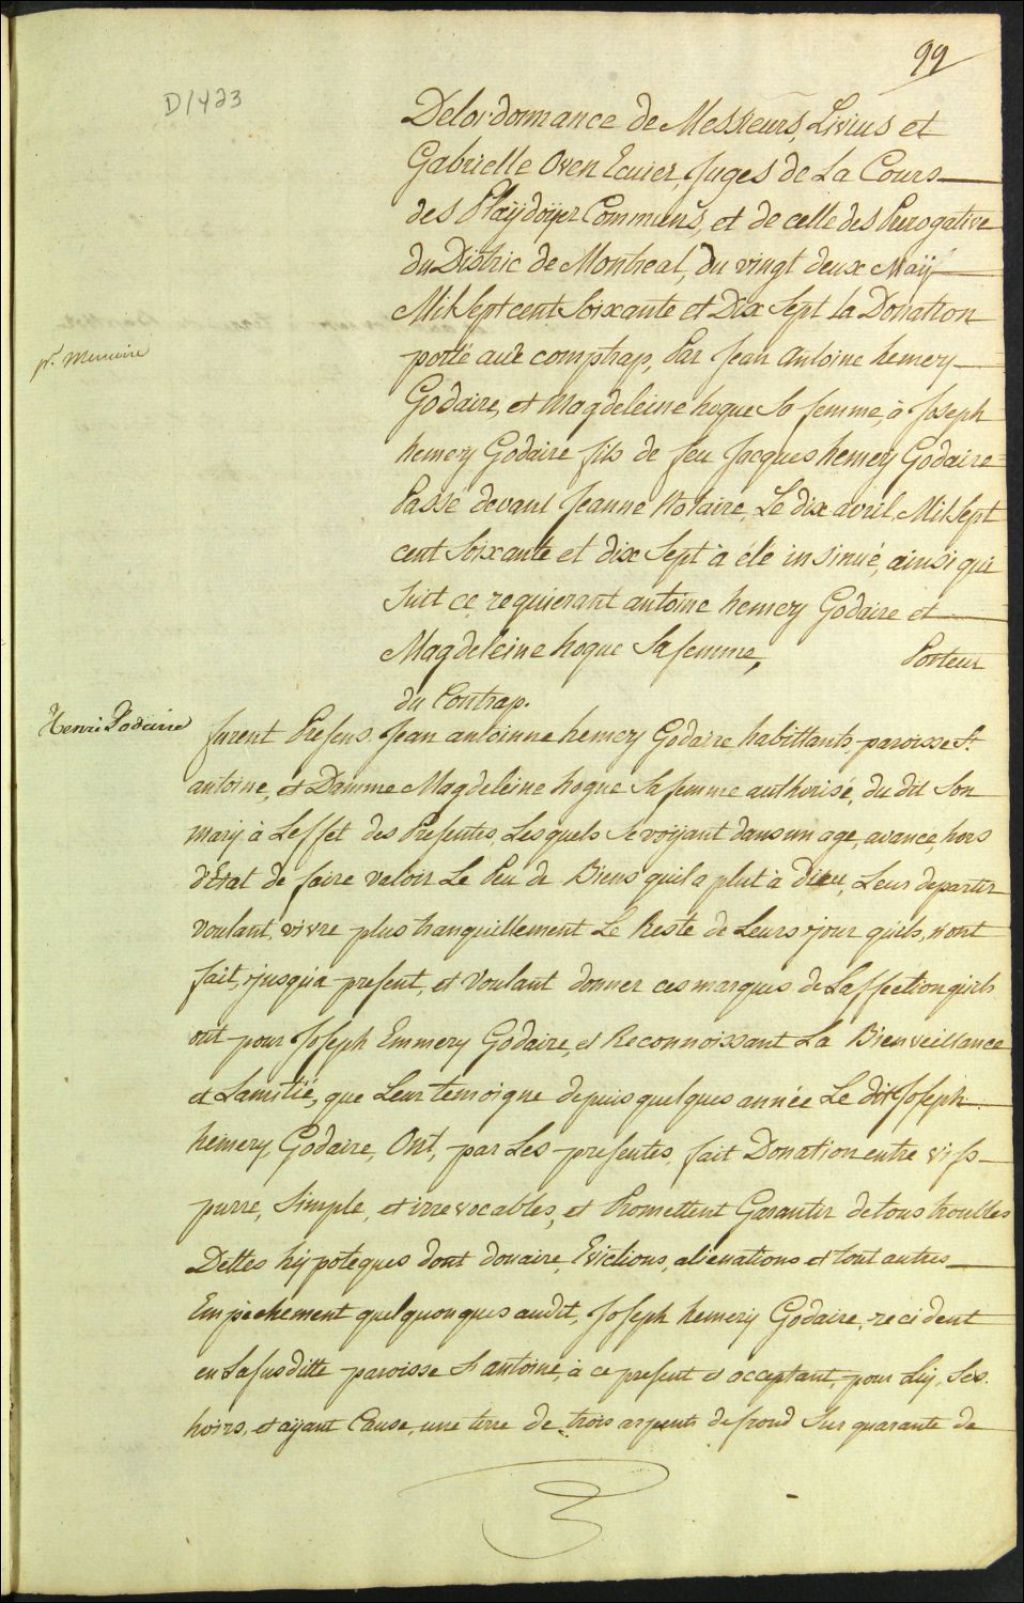 99
D1423
Delordonnance de Messieurs, Livius et
Gabrielle Oven Ecuier, Juges de La Cours
des Plaÿdoÿer Communs, et de celle des Prerogative
du Distric de Montreal, du vingt deux Maÿ
Mil Sept cent Soixante et Dix Sept La Donation
pr. Memoire
porté aux comptrap, Par Jean Antoine hemery
Godaire, et Magdeleine hogue Sa femme, à Joseph
hemery Godaire fils de feu Jacques hemery Godaire
Passé devant Jeanne Notaire, Le dix avril, Mil Sept
cent Soixante et dix Sept à été insinué, ainsi qui
Suit ce requierant antoine hemery Godaire et
Magdeleine hogue Sa femme, Porteur
du Contrap.
Henri Godaire
furent Presens Jean antoinne hemery Godaire habittants paroisse St.
antoine, et Damme Magdeleine hogue Sa femme authorisé, du dit Son
mary à Leffet des Presentes, Lesquels Se voÿant dans un age, avance, hors
d'Etat de faire valoir Le Peu de Biens quil a plut à Dieu, Leur departir
voulant vivre plus tranquillement Le Reste de Leurs jour quils, n'ont
fait, jusqu'a present, et Voulant donner ces marques de Laffection quils
ont pour Joseph Emmery Godaire, et Reconnoissant La Bienveillance
et Lamitié, que Leur temoigne depuis quelques année Le dit Joseph
hemery Godaire, Ont, par Les presentes, fait Donation entre vifs
purre, Simple, et irrevocables, et Promettent Garantir de tous troubles
Dettes hÿpoteques dont douaire, Evictions, alienations et tout autres
Empechement quelquonques audit, Joseph hemery Godaire, recident
en La Susditte paroisse St antoine, à ce present et acceptant, pour Luÿ, Ses
hoirs, et aÿant Cause, une terre de trois arpents de frond Sur quarante de